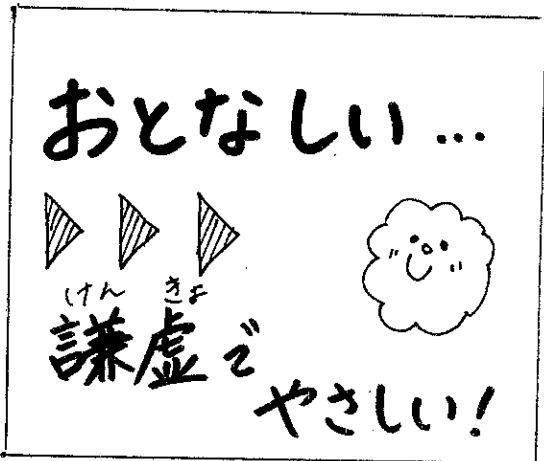 おとなしい...
けんきょ
謙虚で
やさしい!